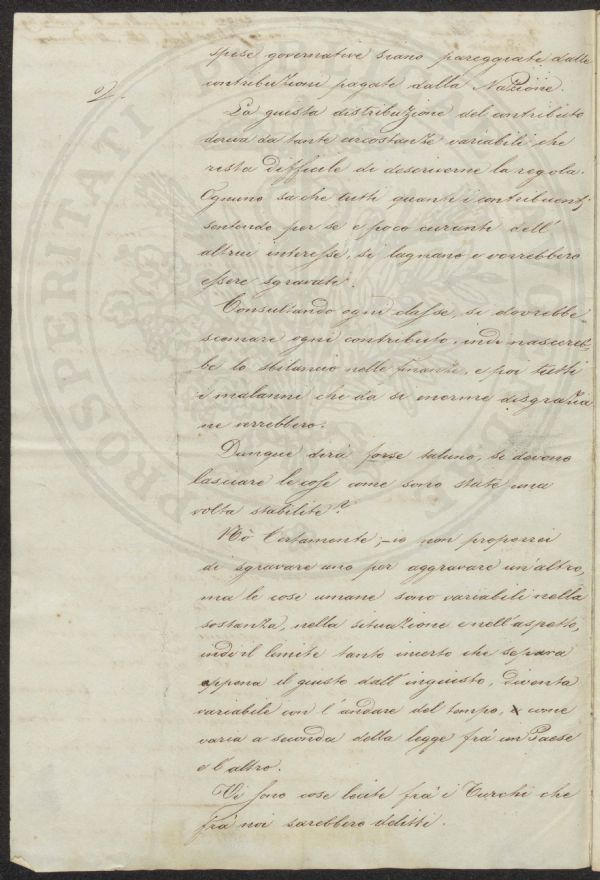 2.
spese governative siano pareggiate dalle
contribuzioni pagate dalla Nazione.
La giusta distribuzione del contributo
deriva da tante circostanze variabili che
resta difficile di descriverne la regola.
Ognuno sa che tutti quanti i contribuenti
sentendo per se e poco curanti dell'
altrui interesse, si lagnano e vorrebbero
essere sgravati.
Consultando ogni classe, si dovrebbe
scemare ogni contributo, indi nascereb-
be lo sbilancio nelle finanze, e poi tutti
i malanni che da sì enorme disgrazia
ne verrebbero.
Dunque dirà forse taluno, si devono
lasciare le cose come sono state una
volta stabilite?
Nò Certamente; - io non proporrei
di sgravare uno per aggravare un'altro,
ma le cose umane sono variabili nella
sostanza, nella situazione e nell'aspetto,
indi il limite tanto incerto che separa
appena il giusto dall'ingiusto, diventa
variabile con l'andare del tempo, come
varia a seconda della legge frà un Paese
e l'altro.
Vi sono cose lecite frà i Turchi che
frà noi sarebbero delitti.
PROSPERITATI